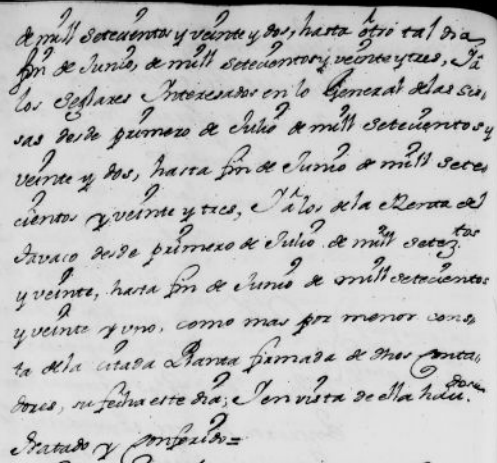 de mill setecientos y veinte y dos, hasta otro tal dia
fin de Junio, de mill setecientos y veinte y tres, Ya
los Seglares Interesados en lo General de las Sis-
sas desde primero de Julio de mill setecientos y
veinte y dos, hasta fin de Junio de mill sete-
cientos y veinte y tres, Ya los de la Renta del
tavaco desde primero de Julio de mill setez.tos
y veinte, hasta fin de Junio de mill setecientos
y veinte y uno, como mas por menor cons-
ta de la citada Planta firmada de dhos Conta-
dores, su fecha este dia, Y en vista de ella hau.dose
tratado y Conferido=